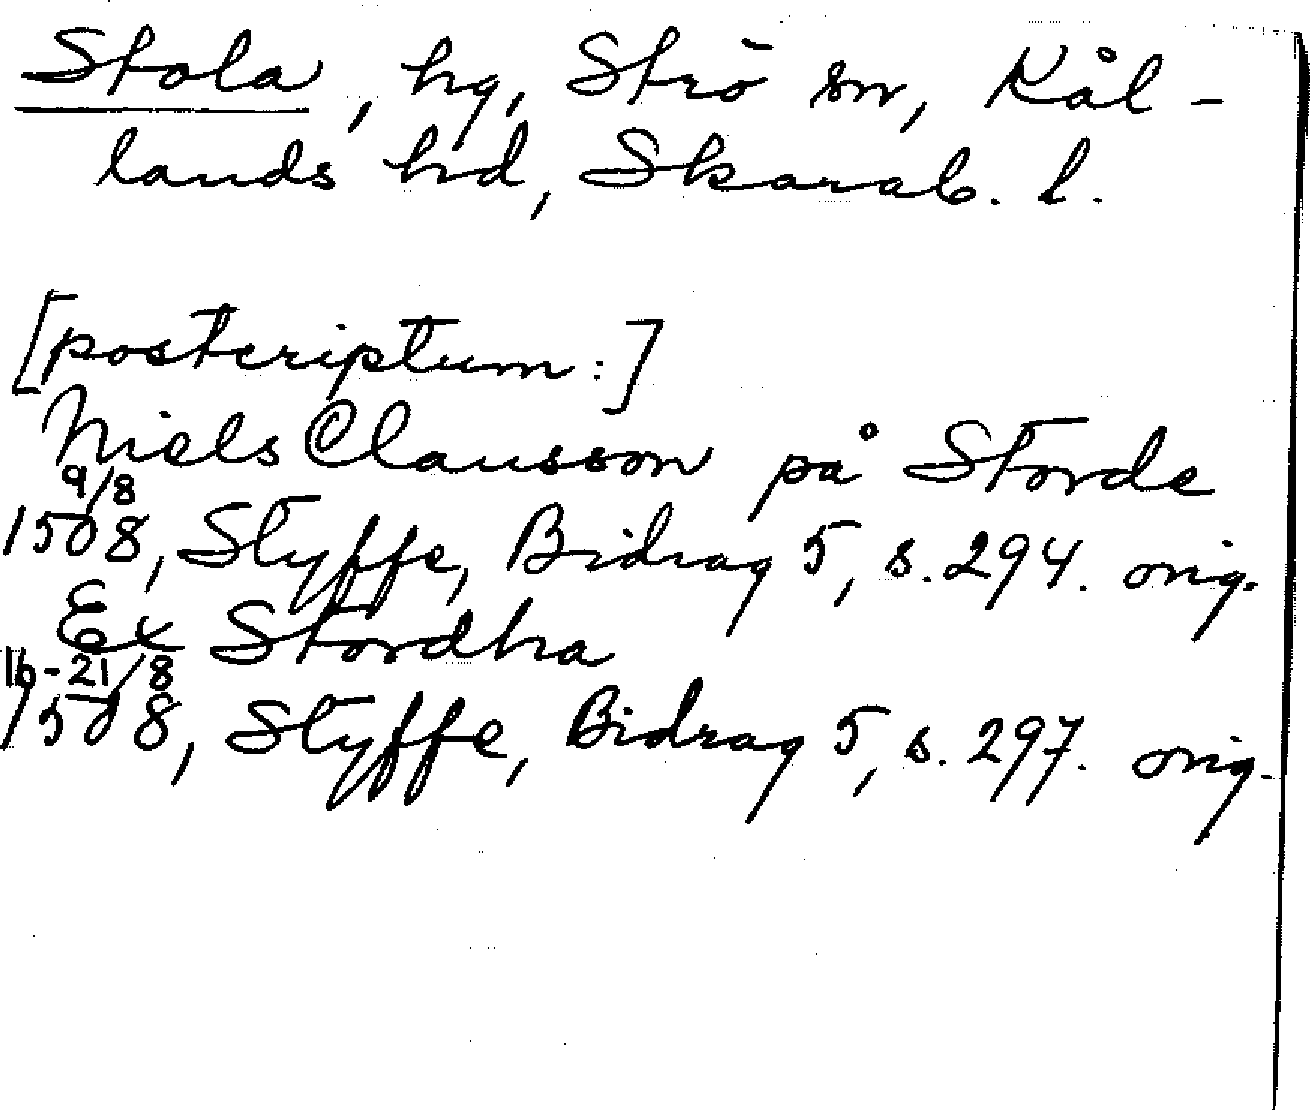 Stola, hg, Strö sn, Kål-
lands hd, Skarab. l.
[postcriptum:]
Niels Clausson på Storde
9/8
1508, Styffe, Bidrag 5, s. 294. orig.
Ex Stordha
16-21/8
1508, Styffe, Bidrag 5, s. 297. orig.